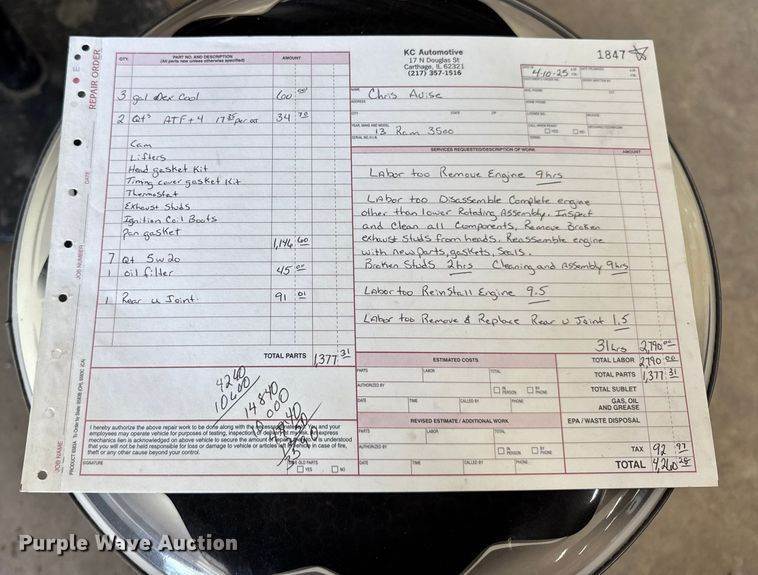 REPAIR ORDER
QTY. PART NO. AND DESCRIPTION AMOUNT
(All parts new unless otherwise specified)
3 gal Dex Cool 60 00
2 Qts ATF+4 34 70
Cam
Lifters
Head gasket Kit
Timing cover gasket Kit
Thermostat
Exhaust Studs
Ignition Coil Boots
Pan gasket
1,146 60
7 Qt 5w20
1 oil filter 45 00
1 Rear u Joint 91 01
TOTAL PARTS 1,377 31
4260
10600
14840
I hereby authorize the above repair work to be done along with the
employees may operate vehicle for purposes of testing, inspection
mechanics lien is acknowledged on above vehicle to secure the amount of
you will not be held responsible for loss or damage to vehicle or articles left in vehicle in case of fire,
theft or any other cause beyond your control.
SIGNATURE
SAVE OLD PARTS
YES NO
DATE
JOB NUMBER
JOB NAME
KC Automotive
17 N Douglas St
Carthage, IL 62321
(217) 357-1516
1847
4-10-25
NAME Chris Avise
ADDRESS
CITY STATE ZIP
YEAR, MAKE AND MODEL
13 Ram 3500
SERIAL NO./V.I.N.
HOME PHONE
LICENSE NO. MILEAGE
YES NO
SERVICES REQUESTED/DESCRIPTION OF WORK AMOUNT
Labor too Remove Engine 9hrs
Labor too Disassemble Complete engine
other than lower Rotating Assembly. Inspect
and clean all Components, Remove Broken
exhaust Studs from heads. Reassemble engine
with new parts, gaskets, Seals.
Broken Studs 2hrs Cleaning and Assembly 9hrs
Labor too ReinStall Engine 9.5
Labor too Remove & Replace Rear u Joint 1.5
31hrs 2,790 00
ESTIMATED COSTS
PARTS LABOR TOTAL
AUTHORIZED BY
IN PERSON BY PHONE
DATE TIME CALLED BY PHONE
REVISED ESTIMATE / ADDITIONAL WORK
PARTS LABOR TOTAL
AUTHORIZED BY
IN PERSON BY PHONE
DATE TIME CALLED BY PHONE
TOTAL LABOR 2790 00
TOTAL PARTS 1,377 31
TOTAL SUBLET
GAS, OIL
AND GREASE
EPA / WASTE DISPOSAL
TAX 92 97
TOTAL 4,260 28
Purple Wave Auction